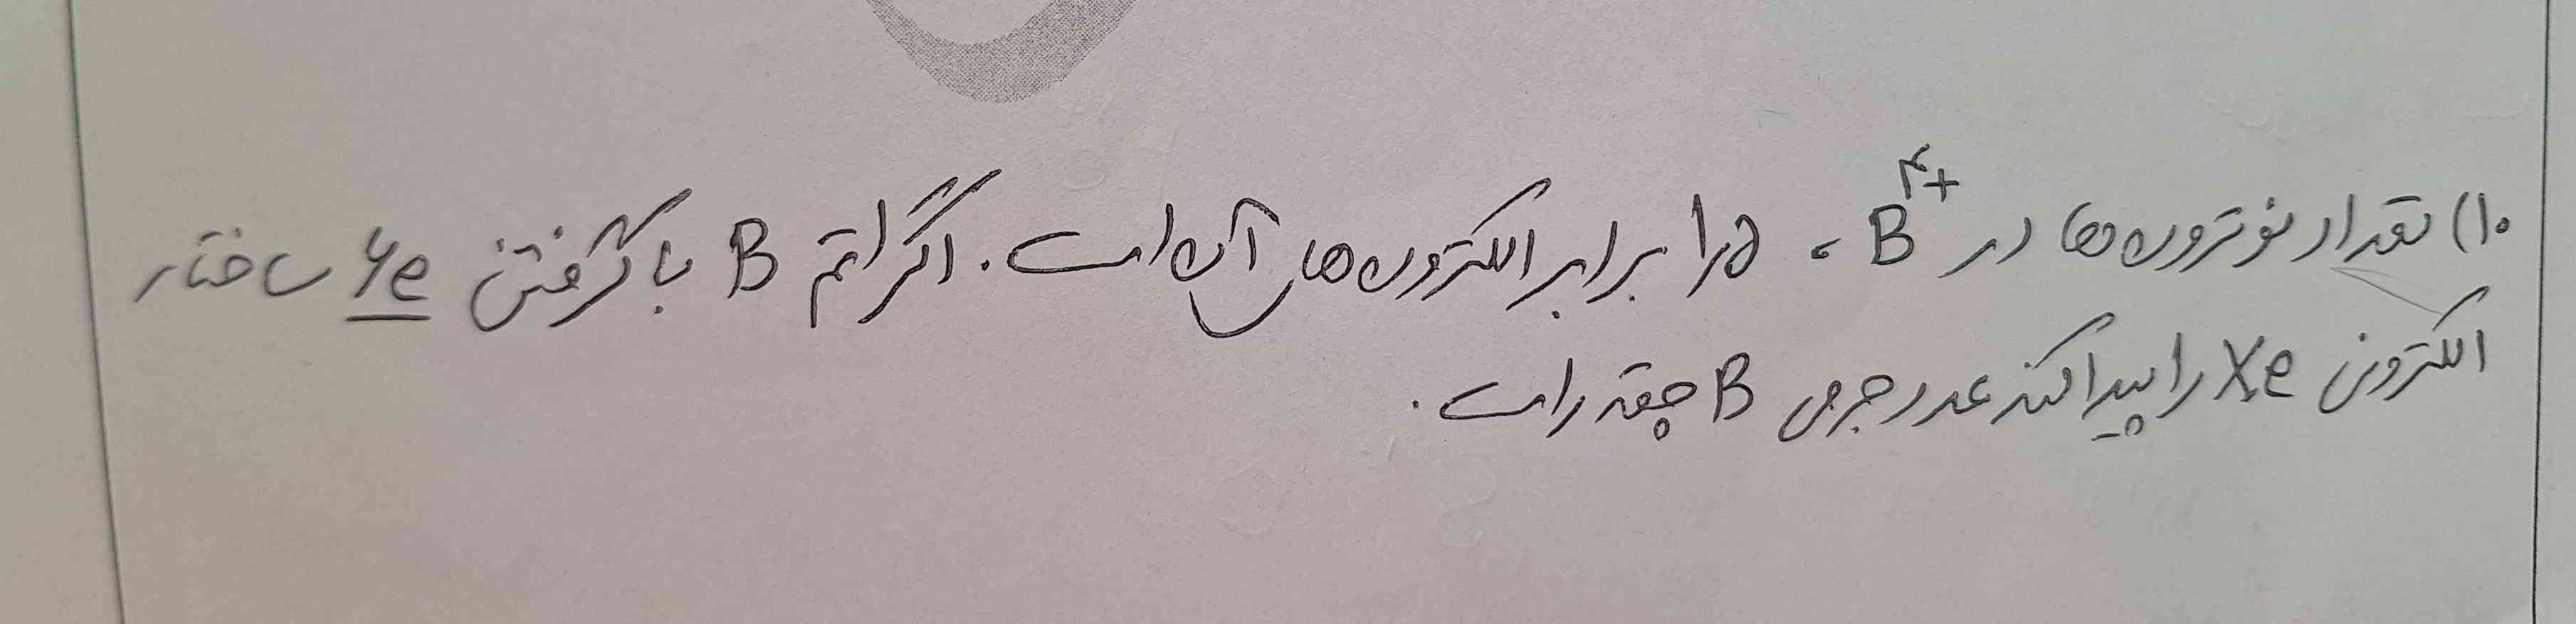 ۱۰) تعداد نوترون‌ها در B⁴⁺ ، ۱٫۵ برابر الکترون‌های آن است. اگر اتم B با گرفتن 4e ساختار
الکترونی Xe را پیدا کند عدد جرمی B چقدر است.